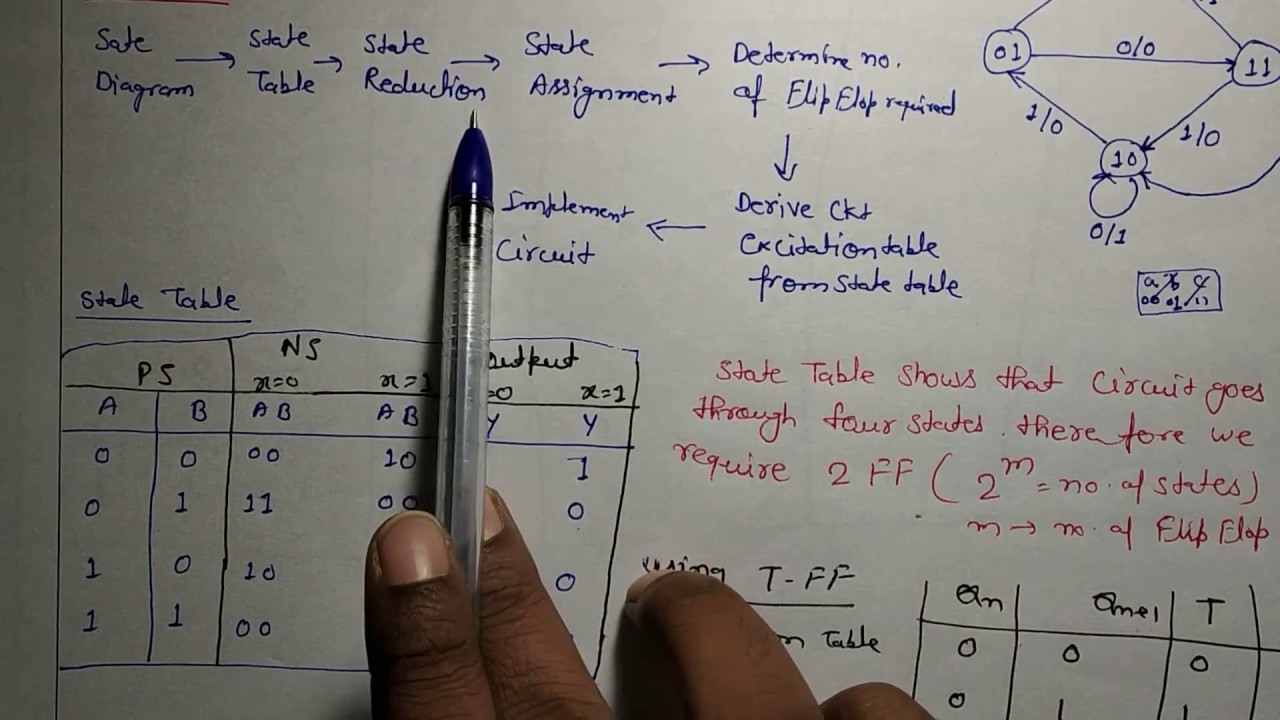 Sate → State → State → State → Determine no.
Diagram Table Reduction Assignment of Flip Flop required
Implement ← Derive Ckt
Circuit excitation table
from state table
01 0/0 11
1/0 1/0
10
0/1
a b c
00 01 11
State Table
PS NS output
x=0 x=1 =0 x=1
A B AB AB Y Y
0 0 00 10 1
0 1 11 00 0
1 0 10 0
1 1 00
State Table shows that Circuit goes
through four states. therefore we
require 2 FF ( 2^m = no. of states)
m → no. of Flip Flop
using T-FF
Table
Qn Qn+1 T
0 0 0
0 1 1